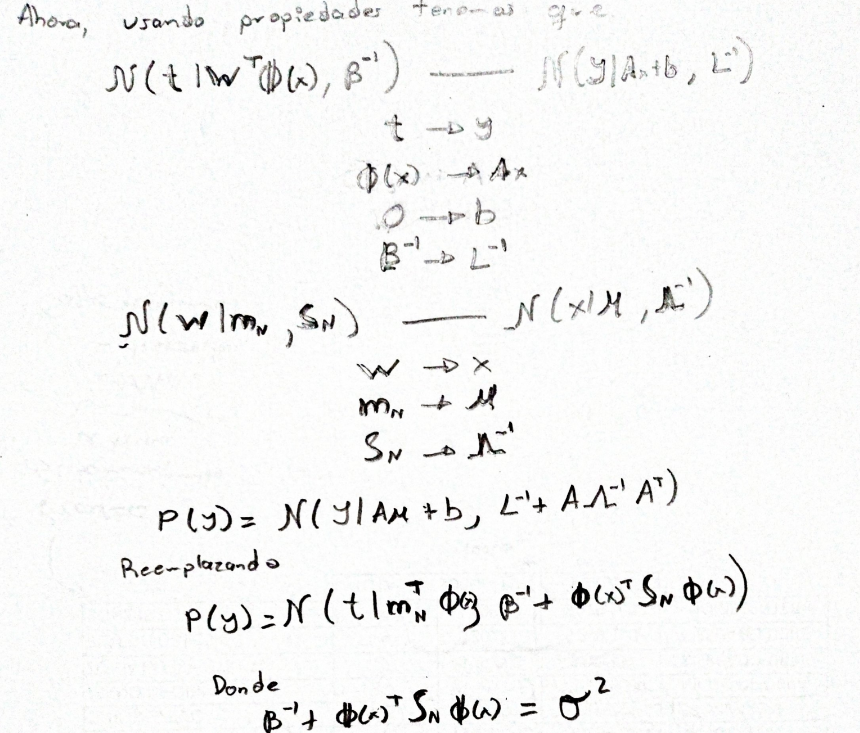 Ahora, usando propiedades tenemos que
N(t|W^T ϕ(x), β^-1) —— N(y|Ax+b, L^-1)
t → y
ϕ(x) → Ax
0 → b
β^-1 → L^-1
N(w|m_N, S_N) —— N(x|μ, Λ^-1)
w → x
m_N → μ
S_N → Λ^-1
P(y) = N(y|Aμ + b, L^-1 + AΛ^-1 A^T)
Reemplazando
P(y) = N(t|m_N^T ϕ(x), β^-1 + ϕ(x)^T S_N ϕ(x))
Donde
β^-1 + ϕ(x)^T S_N ϕ(x) = σ^2